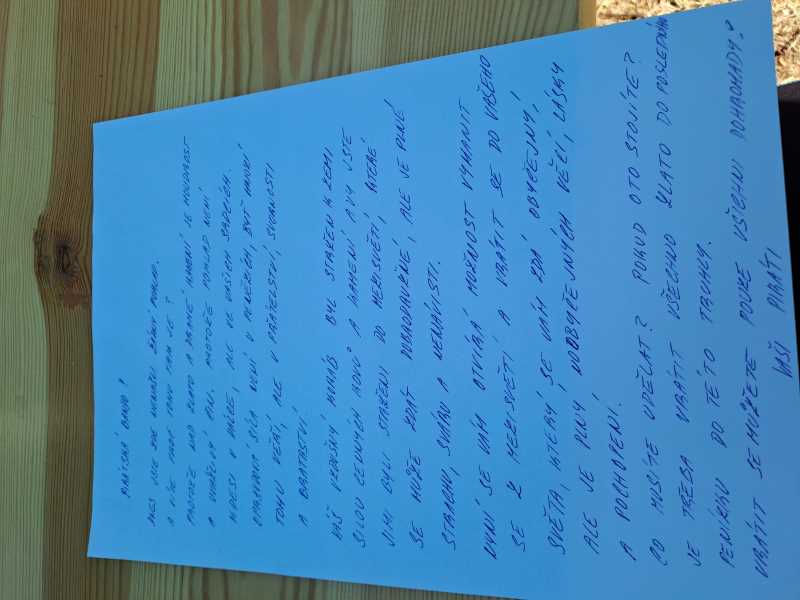 PIRÁTSKÁ BANDO!
DNES JSTE ZDE NENAŠLI ŽÁDNÝ POKLAD.
A VÍTE PROČ TOMU TAK JE?
PROTOŽE NAD ZLATO A DRAHÉ KAMENÍ JE MOUDROST
A UVÁŽLIVÝ PROTOŽE POKLAD NENÍ
KDESI V DÁLCE, ALE VE VAŠICH SRDCÍCH.
OPRAVDOVÁ SÍLA NENÍ V PENĚZÍCH, BYŤ MNOZÍ
TOMU VĚŘÍ, ALE V PŘÁTELSTVÍ, SVORNOSTI
A BRATRSTVÍ.
VÁŠ VZDUŠNÝ KORÁB BYL STAŽEN K ZEMI
SILOU CENNÝCH KOVŮ A KAMENÍ A VY JSTE
JIMI BYLI STAŽENI DO MEZISVĚTÍ, KTERÉ
SE MŮŽE ZDÁT DOBRODRUŽNÉ, ALE JE PLNÉ
STRACHU, SVÁRU A NENÁVISTI.
NYNÍ SE VÁM OTVÍRÁ MOŽNOST VYMANIT
SE Z MEZISVĚTÍ A VRÁTIT SE DO VAŠEHO
SVĚTA, KTERÝ SE VÁM ZDÁ OBYČEJNÝ,
ALE JE PLNÝ NEOBYČEJNÝCH VĚCÍ, LÁSKY
A POCHOPENÍ.
CO MUSÍTE UDĚLAT? POKUD O TO STOJÍTE?
JE TŘEBA VRÁTIT VŠECHNO ZLATO DO POSLEDNÍHO
PENÍZKU DO TÉTO TRUHLY.
VRÁTIT SE MŮŽETE POUZE VŠICHNI DOHROMADY!
VAŠI PIRÁTI